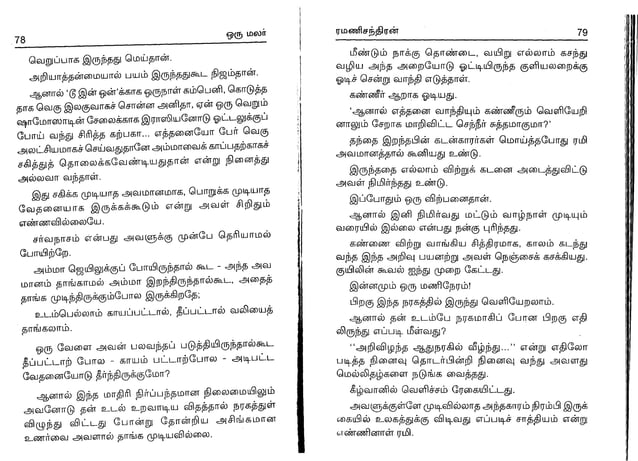 78
ஒரு மலர்
வெறுப்பாக இருந்தது மெய்தான்.
அறியாத்தன்மையால் பயம் இருந்ததுகூட நிஜம்தான்.
ஆனால் 'டூ இன் ஒன்'க்காக ஒருநாள் கம்பெனி, கொடுத்த
தாக வெகு இலகுவாகச் சொன்ன அனிதா, ஏன் ஒரு வெறும்
ஷாமோஸாடின் சேலைக்காக இராஸியனோடு ஓட்டலுக்குப்
போய் வந்து சிரித்த கற்பகா... எத்தனையோ பேர் வெகு
அலட்சியமாகச் செய்வதுதானே அம்மாவைக் காப்பதற்காகச்
சகித்துத் தொலைக்கவேண்டியதுதான் என்று நினைத்து
அல்லவா வந்தாள்.
இது சகிக்க முடியாத அவமானமாக, பொறுக்க முடியாத
வேதனையாக இருக்கக்கூடும் என்று அவள் சிறிதும்
எண்ணவில்லையே.
சர்வநாசம் என்பது அவளுக்கு முன்பே தெரியாமல்
போயிற்றே.
அம்மா ஜெயிலுக்குப் போயிருந்தால் கூட - அந்த அவ
மானம் தாங்காமல் அம்மா இறந்திருந்தால்கூட, அதைத்
தாங்க முடிந்திருக்கும்போல இருக்கிறதே;
உடம்பெல்லாம் காயப்பட்டால், தீப்பட்டால் வலியைத்
தாங்கலாம்.
ஒரு வேளை அவன் பலவந்தப் படுத்தியிருந்தால்கூட
தீப்பட்டாற் போல - காயம் பட்டாற்போல - அடிபட்ட
வேதனையோடு தீர்ந்திருக்குமோ?
ஆனால் இந்த மாதிரி நிர்ப்பந்தமான நிலைமையிலும்
அவனோடு தன் உடல் உறவாடிய விதத்தால் நரகத்துள்
விழுந்து விட்டது போன்று தோன்றிய அசிங்கமான
உணர்வை அவளால் தாங்க முடியவில்லை.
ரமணிசந்திரன்
79
மீண்டும் நாக்கு தொண்டை, வயிறு எல்லாம் கசந்து
வழிய அந்த அறையோடு ஓட்டியிருந்த குளியலறைக்கு
ஓடிச் சென்று வாந்தி எடுத்தாள்.
கண்ணீர் ஆறாக ஓடியது.
'ஆனால் எத்தனை வாந்தியும் கண்ணீரும் வெளியேறி
னாலும் சேறாக மாறிவிட்ட செந்நீர் சுத்தமாகுமா?'
தந்தை இறந்தபின் கடன்காரர்கள் மொய்த்தபோது ரமி
அவமானத்தால் கூனியது உண்டு.
இருந்ததை எல்லாம் விற்றுக் கடனை அடைத்துவிட்டு
அவள் நிமிர்ந்தது உண்டு.
இப்போதும் ஒரு விற்பனைதான்.
ஆனால் இனி நிமிர்வது மட்டும் வாழ்நாள் முடியும்
வரையில் இல்லை என்பது நன்கு புரிந்தது.
கண்ணை விற்று வாங்கிய சித்திரமாக, காலம் கடந்து
வந்த இந்த அறிவு பயனற்று அவள் நெஞ்சைக் கசக்கியது.
குயிலின் கூவல் ஐந்து முறை கேட்டது.
இன்னமும் ஒரு மணிநேரம்!
பிறகு இந்த நரகத்தில் இருந்து வெளியேறலாம்.
ஆனால் தன் உடம்பே நரகமாகிப் போன பிறகு எதி
லிருந்து எப்படி மீள்வது?
"அறிவிழந்த ஆதுநரகில் வீழ்ந்து..." என்று எதிலோ
படித்த நினைவு தொடர்பின்றி நினைவு வந்து அவளது
மெல்லிதழ்களை நடுங்க வைத்தது.
கீழ்வானில் வெளிச்சம் ரேகையிட்டது.
அவளுக்குள்ளே முடிவில்லாத அந்தகாரம் நிரம்பி இருக்
கையில் உலகத்துக்கு விடிவது எப்படிச் சாத்தியம் என்று
எண்ணினாள் ரமி.